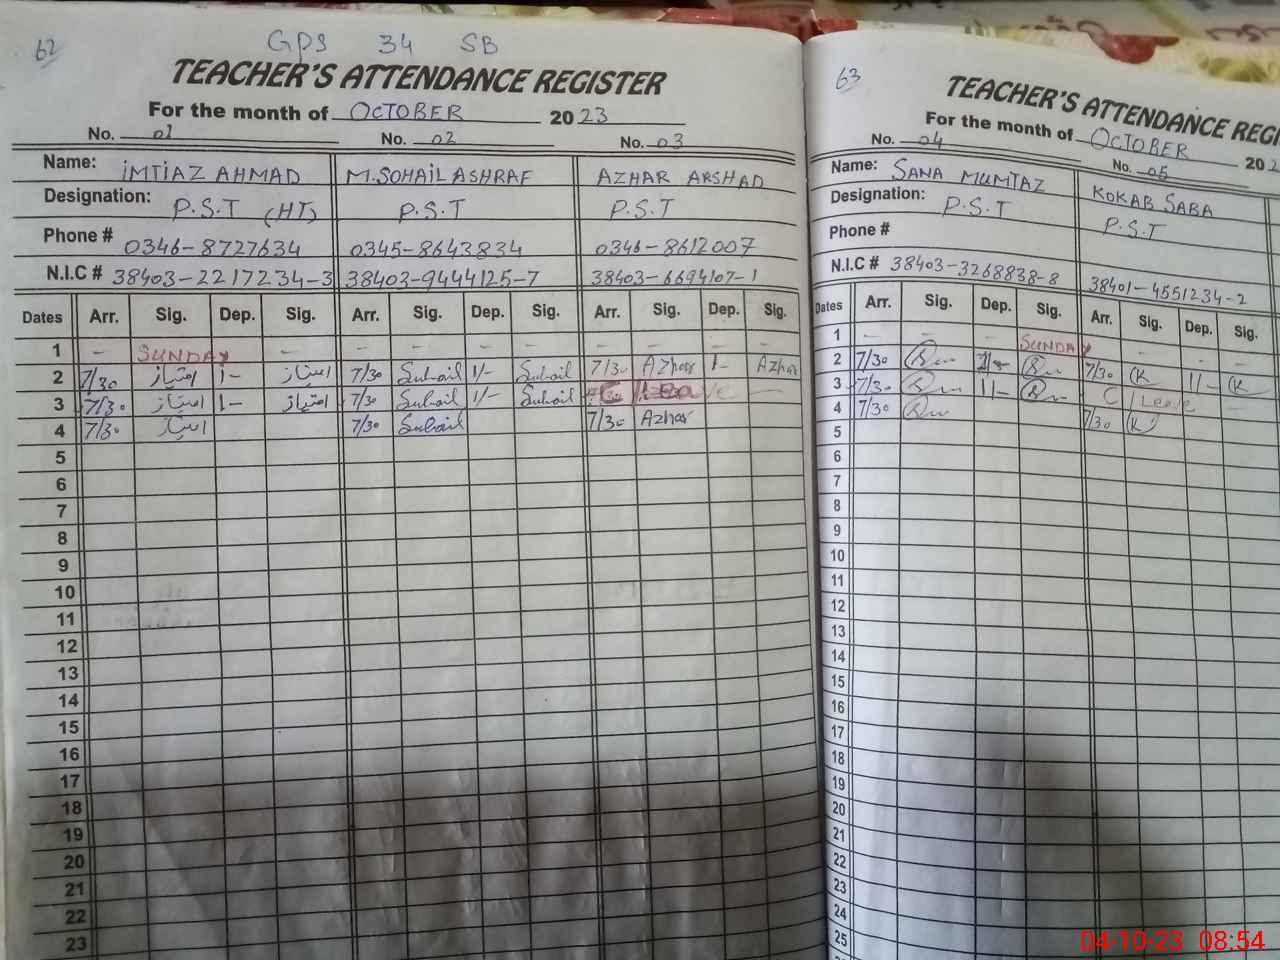 62
GPS 34 SB
TEACHER'S ATTENDANCE REGISTER
For the month of OCTOBER 2023
No. 01 No. 02 No. 03
Name: IMTIAZ AHMAD M.SOHAIL ASHRAF AZHAR ARSHAD
Designation: P.S.T (HT) P.S.T P.S.T
Phone # 0346-8727634 0345-8643834 0346-8612007
N.I.C # 38403-2217234-3 38403-9444125-7 38403-6694107-1
Dates Arr. Sig. Dep. Sig. Arr. Sig. Dep. Sig. Arr. Sig. Dep. Sig.
1 - SUNDAY - - - - - - - - -
2 7/30 امتیاز 1- امتیاز 7/30 Suhail 1/- Suhail 7/30 Azhar 1- Azhar
3 7/30 امتیاز 1- امتیاز 7/30 Suhail 1/- Suhail Leave -
4 7/30 امتیاز 7/30 Suhail 7/30 Azhar
5
6
7
8
9
10
11
12
13
14
15
16
17
18
19
20
21
22
23
63
TEACHER'S ATTENDANCE REGI
For the month of OCTOBER 202
No. 04 No. 05
Name: SANA MUMTAZ KOKAB SABA
Designation: P.S.T P.S.T
Phone #
N.I.C # 38403-3268838-8 38401-4551234-2
Dates Arr. Sig. Dep. Sig. Arr. Sig. Dep. Sig.
1 - - - SUNDAY - - -
2 7/30 1/- 7/30 K 1/- K
3 7/30 1/- C/Leave -
4 7/30 7/30 K
5
6
7
8
9
10
11
12
13
14
15
16
17
18
19
20
21
22
23
24
25
04-10-23 08:54